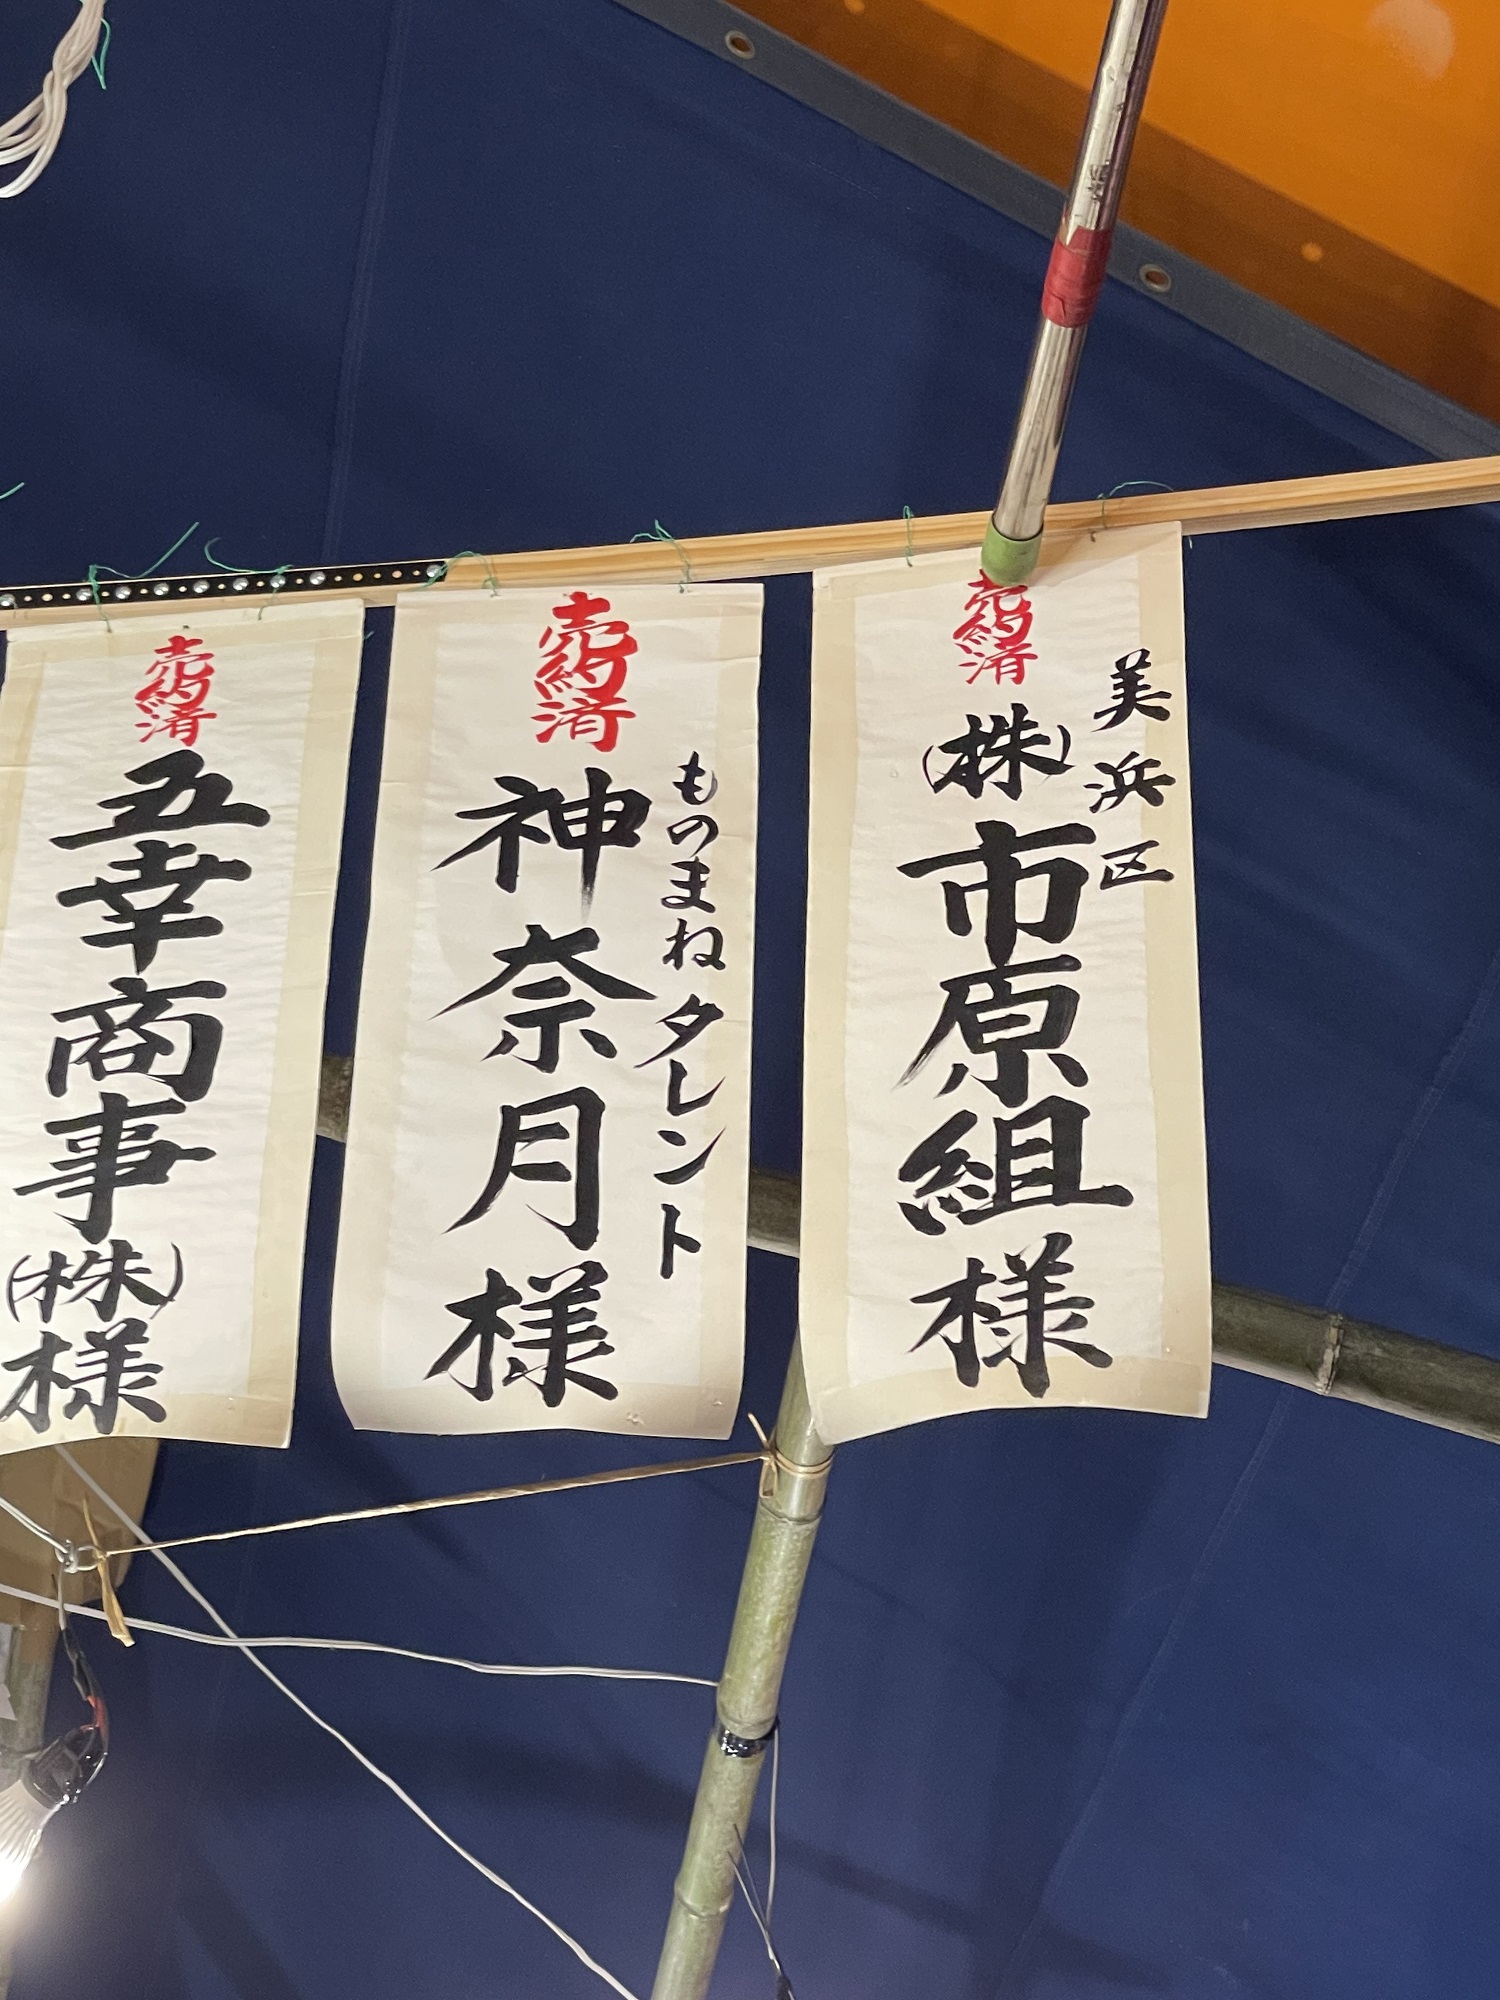 売約済
美浜区
(株)市原組様
売約済
ものまねタレント
神奈月様
売約済
五幸商事(株)様